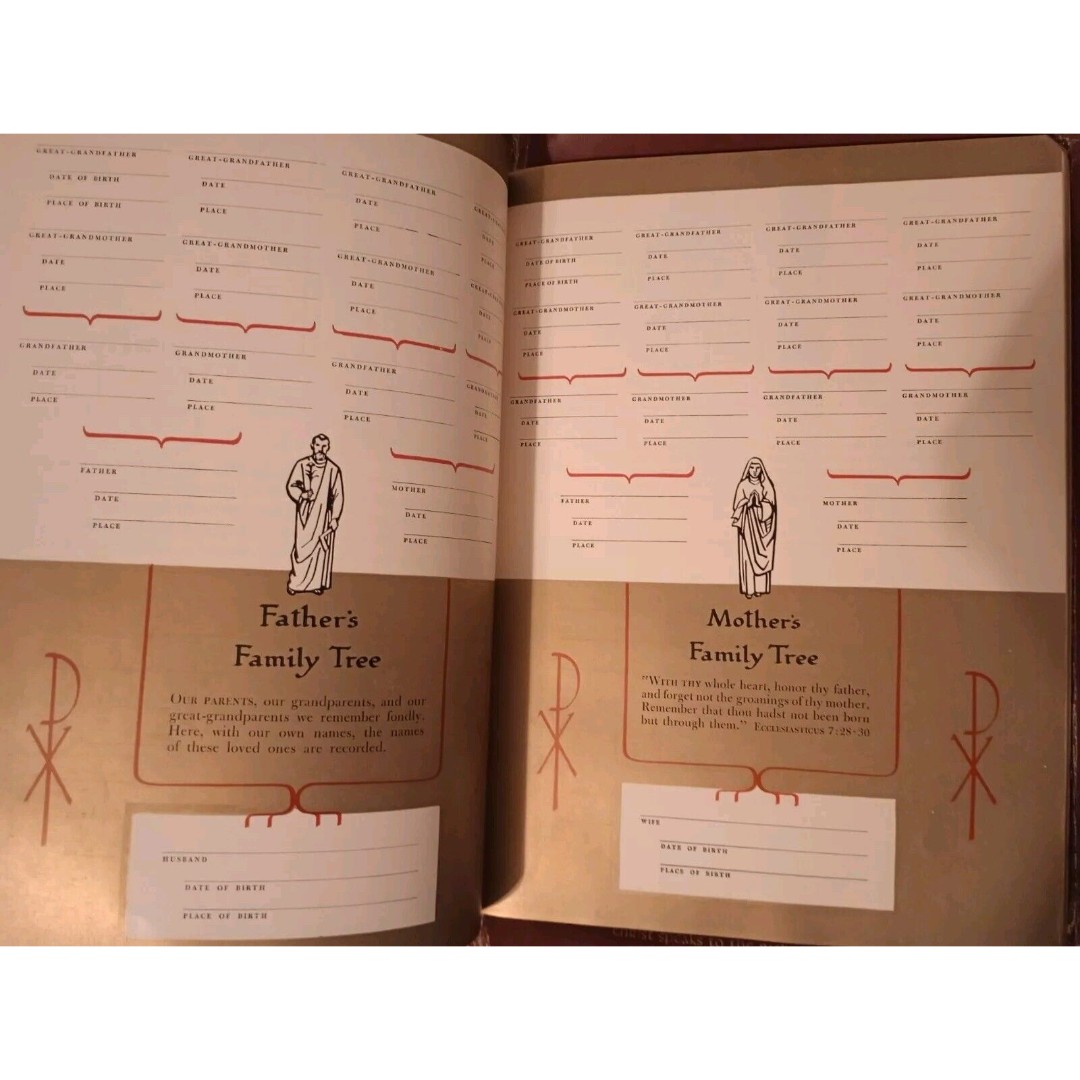 GREAT-GRANDFATHER GREAT-GRANDFATHER GREAT-GRANDFATHER
DATE OF BIRTH DATE DATE DATE
PLACE OF BIRTH PLACE PLACE
GREAT-GRANDMOTHER GREAT-GRANDMOTHER GREAT-GRANDMOTHER
DATE DATE DATE
PLACE PLACE PLACE
GRANDFATHER GRANDMOTHER GRANDFATHER
DATE DATE DATE DATE
PLACE PLACE PLACE PLACE
FATHER MOTHER
DATE DATE
PLACE PLACE
Father's
Family Tree
OUR PARENTS, our grandparents, and our
great-grandparents we remember fondly.
Here, with our own names, the names
of these loved ones are recorded.
HUSBAND
DATE OF BIRTH
PLACE OF BIRTH
GREAT-GRANDFATHER GREAT-GRANDFATHER GREAT-GRANDFATHER GREAT-GRANDFATHER
DATE OF BIRTH DATE DATE DATE
PLACE OF BIRTH PLACE PLACE PLACE
GREAT-GRANDMOTHER GREAT-GRANDMOTHER GREAT-GRANDMOTHER GREAT-GRANDMOTHER
DATE DATE DATE DATE
PLACE PLACE PLACE PLACE
GRANDFATHER GRANDMOTHER GRANDFATHER GRANDMOTHER
DATE DATE DATE DATE
PLACE PLACE PLACE PLACE
FATHER MOTHER
DATE DATE
PLACE PLACE
Mother's
Family Tree
"WITH THY whole heart, honor thy father,
and forget not the groanings of thy mother.
Remember that thou hadst not been born
but through them." ECCLESIASTICUS 7:28-30
WIFE
DATE OF BIRTH
PLACE OF BIRTH
speaks to the